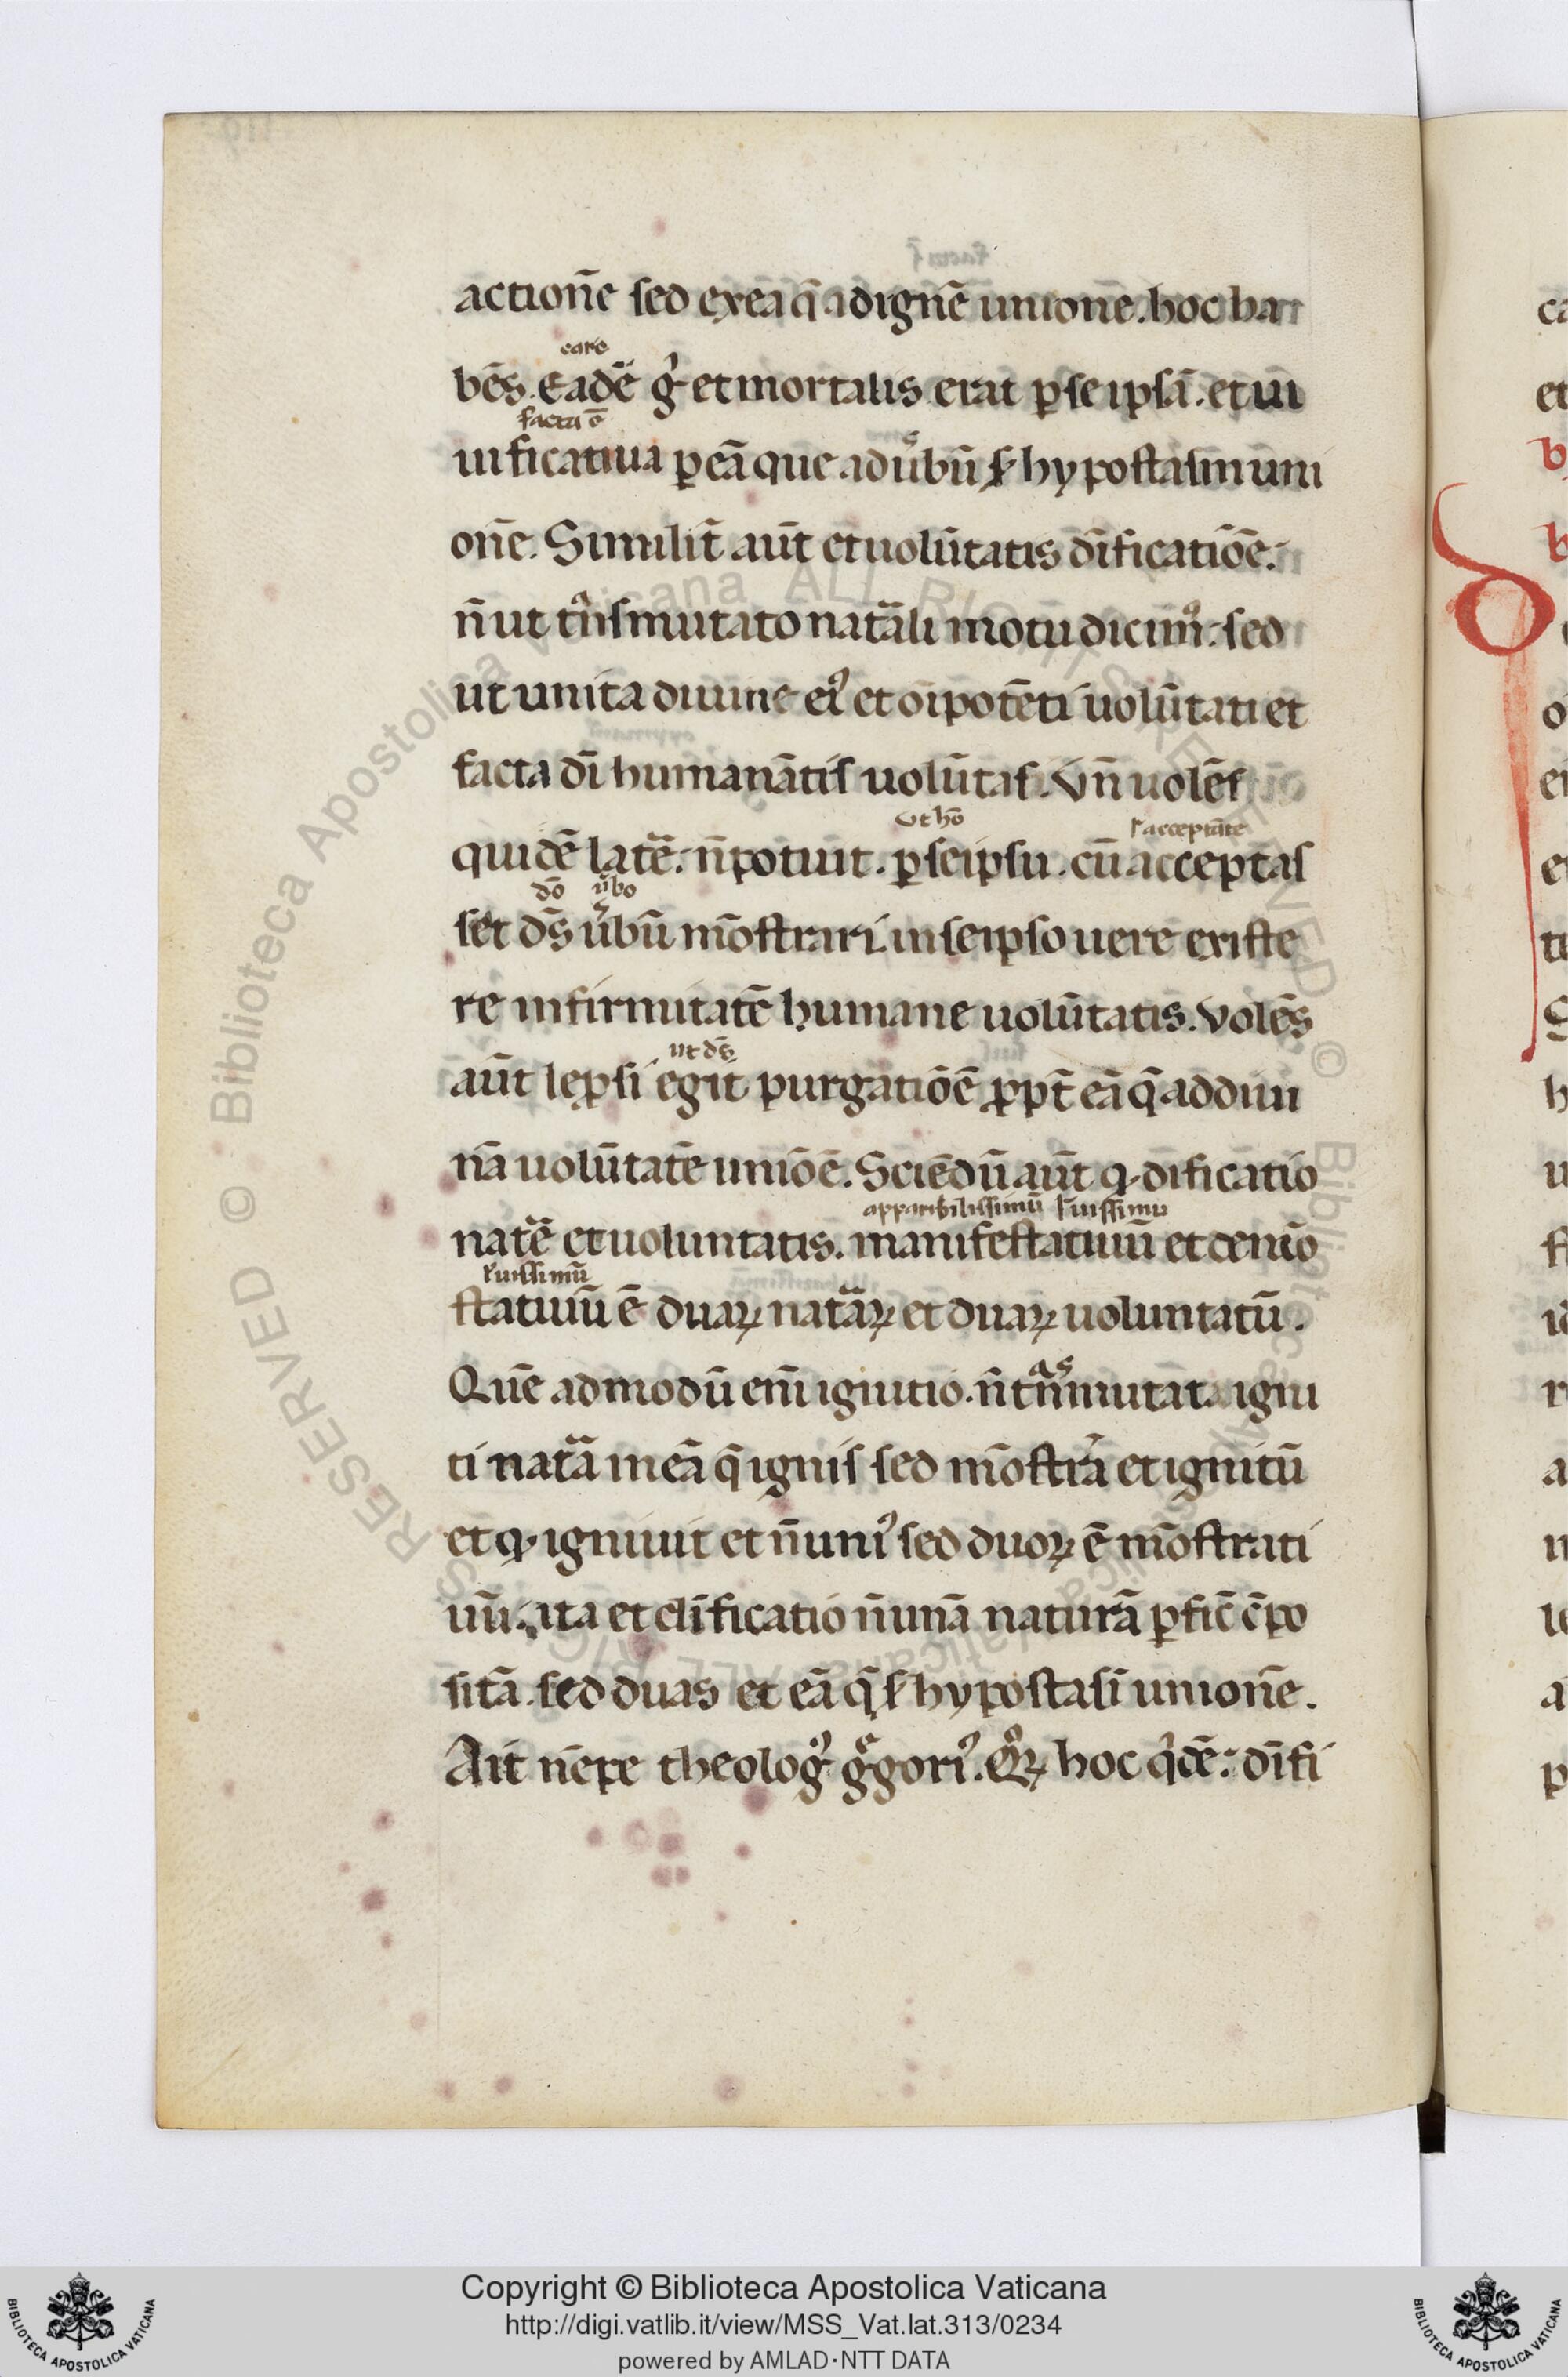 actionē sed ex ea q̄ ad ignē unionē. hoc ha
caro
bēs. Eadē gͥ et mortalis erat ꝑ se ipsā. et ui
facta ē
uificatiua ꝑ eā que ad ůbū ẜ hypostasim uni
onē. Similit̄ aūt et uolūtatis dīficatiōē.
n̄ ut tn̄smutato natāli motu dicimꝰ. sed
ut unita diuine eiꝰ et oīpotēti uolūtati et
facta dī humanātis uolūtas. Vn̄ uolēs
ut hō ẜ acceptāte
quidē latē. n̄ potuit. ꝑ seipsū. cū acceptas
dō ůbo
set ds̄ ůbū mōstrari in seipso uere existe
re infirmitatē humane uolūtatis. Volēs
ut ds̄
aūt lepsi egit purgatiōē ꝓpt̄ eā q̄ ad diui
nā uolūtatē uniōē. Sciēdū aūt ꝙ dīficatio
apparibilissimū ẜuissimū
natē et uoluntatis. manifestatiuū et demō
ẜuissimū
statiuū ē duaꝝ nataꝝ et duaꝝ uoluntatū.
Quē admodū enī ignitio. n̄ tn̄smutat igni
ti natā in eā q̄ ignis sed mōstrā et ignitū
et ꝙ igniuit et n̄ uniꝰ sed duoꝝ ē mōstrati
uū. ita et dīficatio n̄ unā naturā ꝑfic̄ c̄po
sitā. sed duas et eā q̄ ẜ hypostasī unionē.
Ait nēpe theologꝰ gͤgoriꝰ. Qͦꝝ hoc qͥdē: dīfi
ALL RIGHTS RESERVED © Biblioteca Apostolica Vaticana
Copyright © Biblioteca Apostolica Vaticana
http://digi.vatlib.it/view/MSS_Vat.lat.313/0234
powered by AMLAD·NTT DATA
BIBLIOTECA APOSTOLICA VATICANA
BIBLIOTECA APOSTOLICA VATICANA